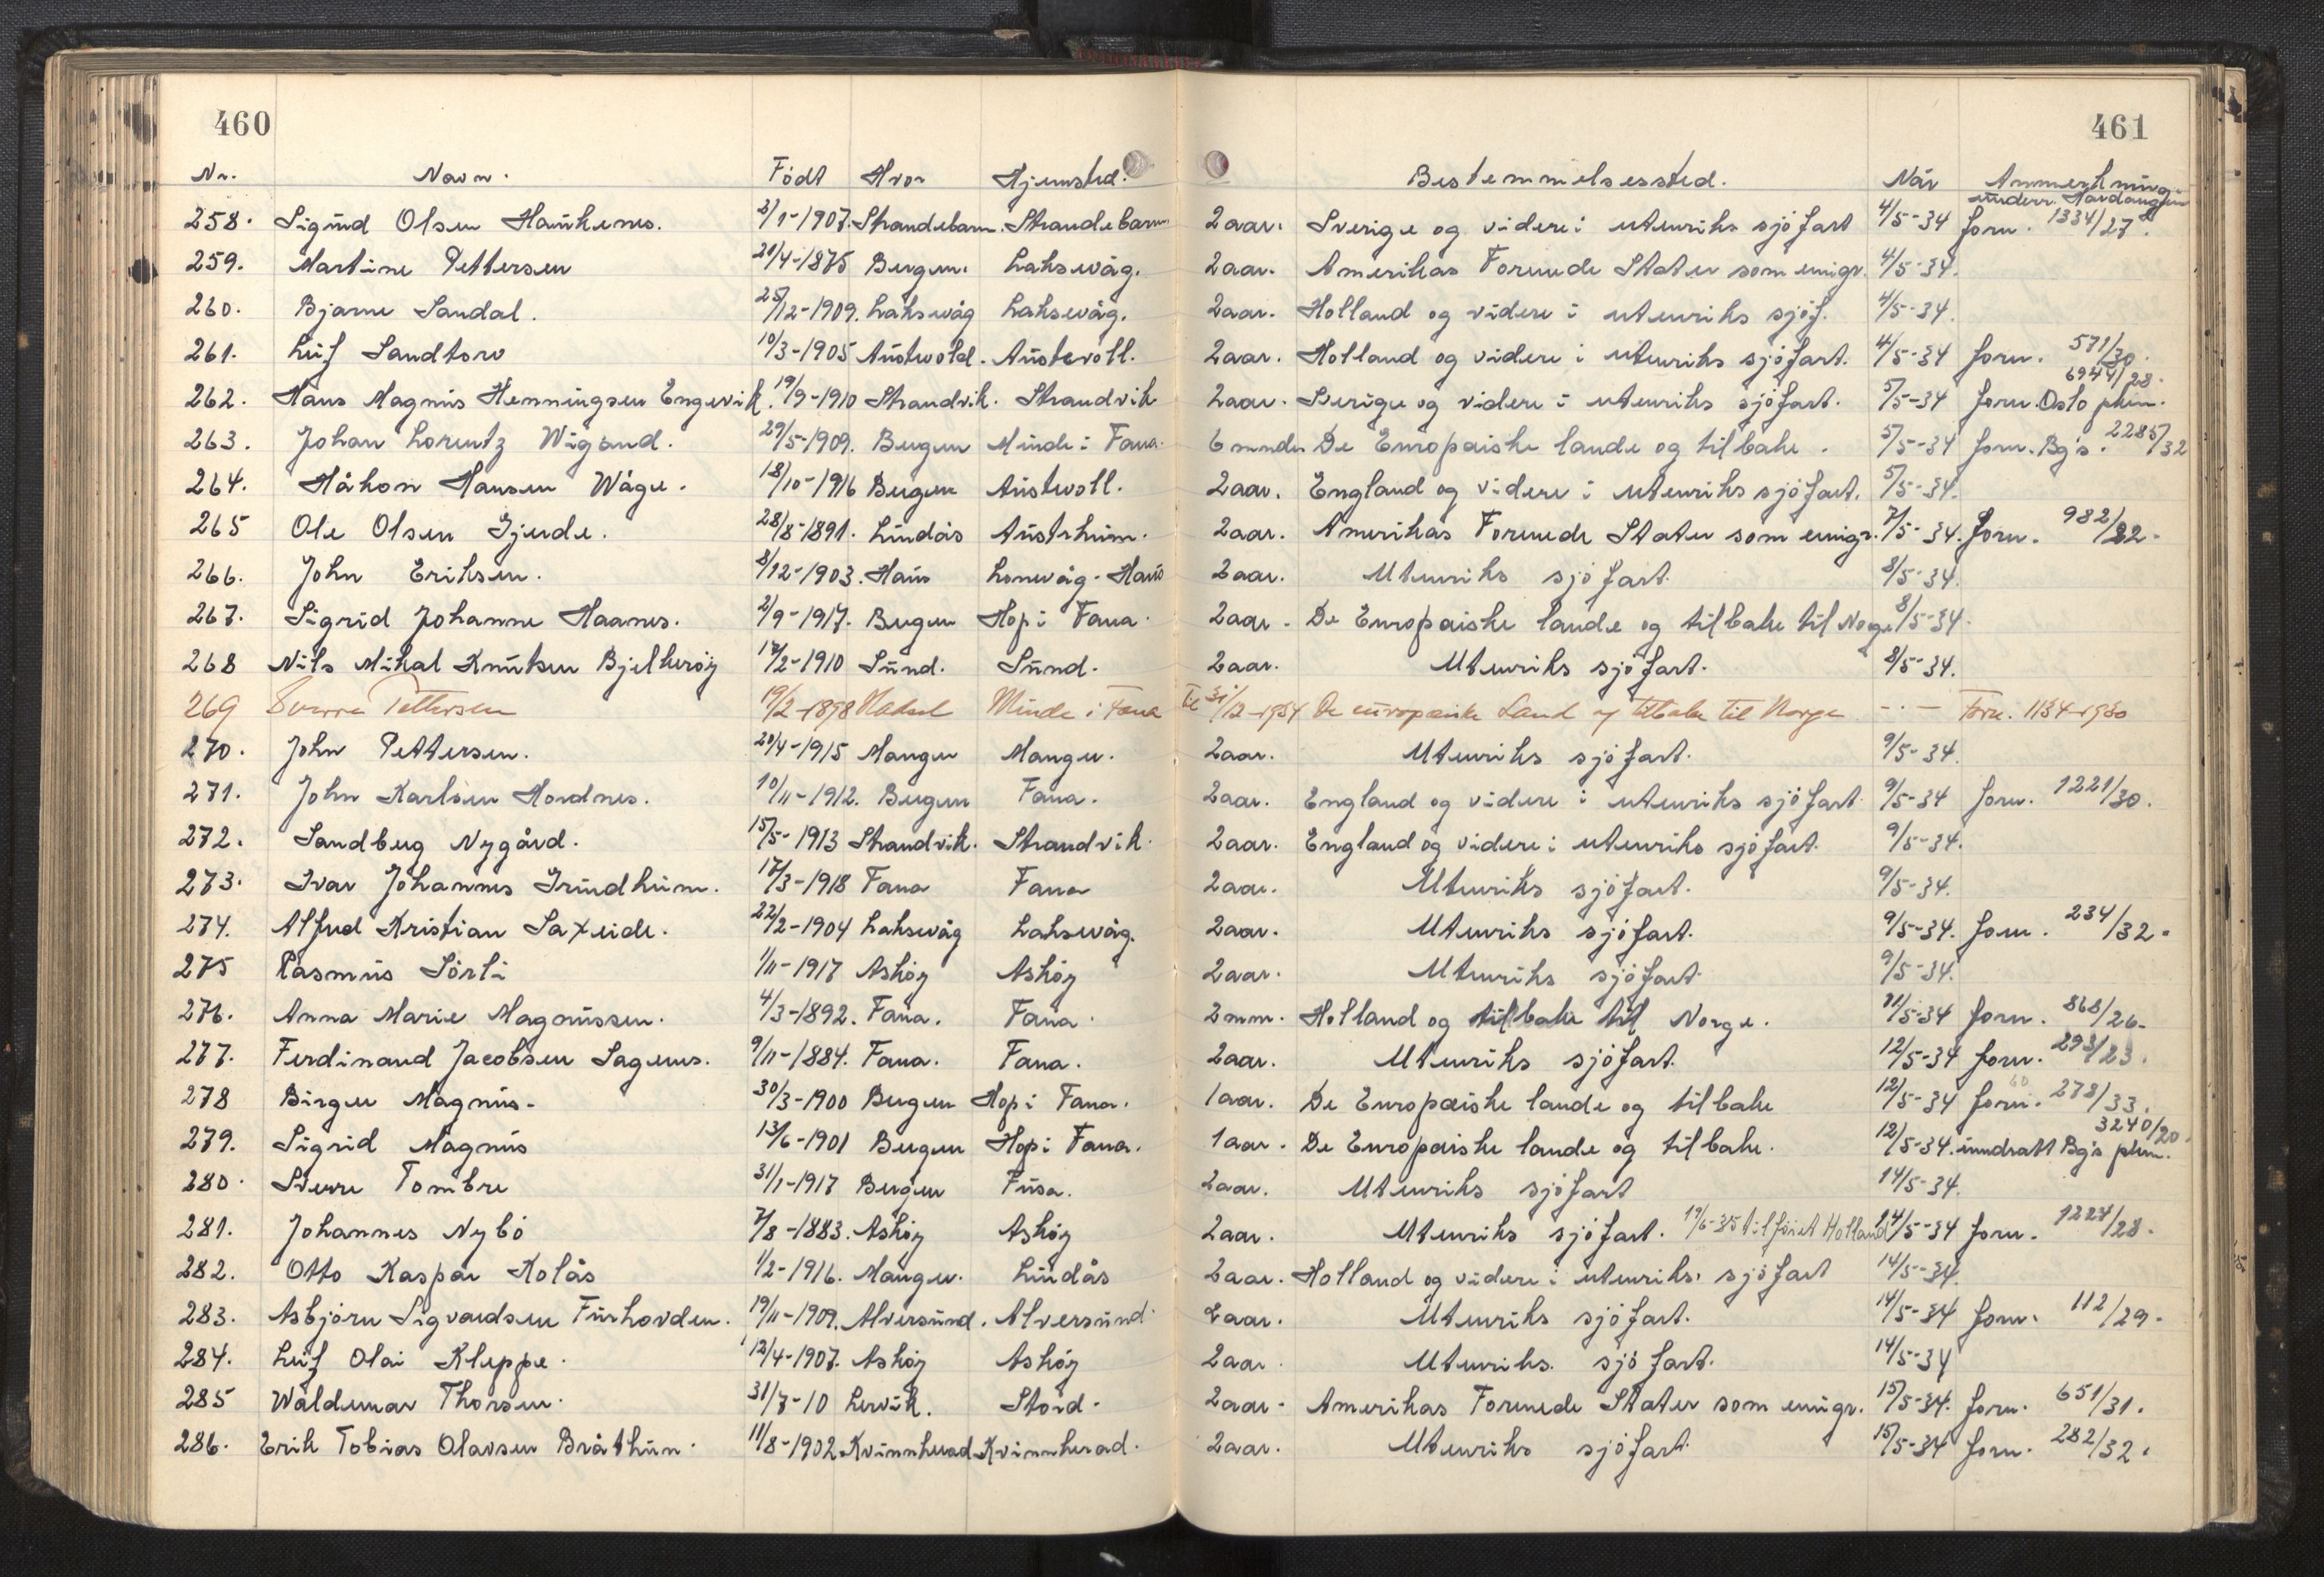 460
461
Nr. Navn. Födt Hvor Hjemsted. Bestemmelsessted. När Anmerkning.
underv. Hardanger
258. Sigurd Olsen Haukenes. 2/1-1907. Strandebarm. Strandebarm 2 aar. Sverige og videre i utenriks sjöfart 4/5-34 forn. 1334/27.
259. Martine Pettersen 20/4-1875 Bergen. Laksevåg. 2 aar. Amerikas Forenede Stater som emigr. 4/5-34.
260. Bjarne Sandal. 25/12-1909. Laksevåg Laksevåg. 2 aar. Holland og videre i utenriks sjöf. 4/5-34.
261. Leif Sandtorv 10/3-1905 Austevold. Austevoll. 2 aar. Holland og videre i utenriks sjöfart. 4/5-34 forn. 571/30.
6944/28.
262. Hans Magnus Henningsen Engevik. 19/9-1910 Strandvik. Strandvik 2 aar. Sverige og videre i utenriks sjöfart. 5/5-34 forn. Oslo pkm.
263. Johan Lorentz Wigand. 29/5-1909. Bergen Minde i Fana. 6 mnder. De Europæiske lande og tilbake. 5/5-34 forn. Bg's. 2285/32
264. Håkon Hansen Wåge. 18/10-1916 Bergen Austevoll. 2 aar. England og videre i utenriks sjöfart. 5/5-34.
265 Ole Olsen Gjerde. 28/8-1891. Lindås Austrheim. 2 aar. Amerikas Forenede Stater som emigr. 7/5-34. forn. 982/22.
266. John Eriksen. 8/12-1903. Haus Lonevåg-Haus 2 aar. Utenriks sjöfart. 8/5-34.
267. Sigrid Johanne Haanes. 2/9-1917. Bergen Hop i Fana. 2 aar. De Europæiske lande og tilbake til Norge 8/5-34.
268 Nils Mikal Knutsen Bjelkeröy 17/2-1910 Sund. Sund. 2 aar. Utenriks sjöfart. 8/5-34.
269 Sverre Pettersen 19/2-1898 Hadsel Minde i Fana Til 31/12-1934 De europæiske Land og tilbake til Norge -"- Forn. 1134-1930
270. John Pettersen. 20/4-1915 Manger Manger. 2 aar. Utenriks sjöfart. 9/5-34.
271. John Karlsen Hordnes. 10/11-1912. Bergen Fana. 2 aar. England og videre i utenriks sjöfart 9/5-34 forn. 1221/30.
272. Sandberg Nygård. 15/5-1913 Strandvik. Strandvik. 2 aar. England og videre i utenriks sjöfart. 9/5-34.
273. Ivar Johannes Grindheim. 17/3-1918 Fana Fana 2 aar. Utenriks sjöfart. 9/5-34.
274. Alfred Kristian Saxeide. 22/2-1904 Laksevåg Laksevåg. 2 aar. Utenriks sjöfart. 9/5-34. forn. 234/32.
275 Rasmus Sörli 1/11-1917 Asköy Asköy 2 aar. Utenriks sjöfart 9/5-34.
276. Anna Marie Magnussen. 4/3-1892. Fana. Fana. 2 mm. Holland og tilbake til Norge. 11/5-34 forn. 868/26.
277. Ferdinand Jacobsen Sagenes. 9/11-1884. Fana. Fana. 2 aar. Utenriks sjöfart. 12/5-34 forn. 293/23.
278 Birger Magnus. 30/3-1900 Bergen Hop i Fana. 1 aar. De Europæiske lande og tilbake 12/5-34 forn. 278/33.
3240/20.
279. Sigrid Magnus 13/6-1901 Bergen Hop i Fana. 1 aar. De Europæiske lande og tilbake. 12/5-34. inndratt Bg's pkm.
280. Sverre Tombre 31/1-1917 Bergen Fusa. 2 aar. Utenriks sjöfart 14/5-34.
281. Johannes Nybö 7/8-1883. Asköy Asköy 2 aar. Utenriks sjöfart. 19/6-35 tilföiet Holland 14/5-34 forn. 1224/28.
282. Otto Kaspar Kolås 1/2-1916. Manger. Lindås 2 aar. Holland og videre i utenriks sjöfart 14/5-34.
283. Asbjörn Sigvardsen Furhovden. 19/11-1909. Alversund. Alversund. 2 aar. Utenriks sjöfart. 14/5-34 forn. 112/29.
284. Leif Olai Kleppe. 12/4-1907. Asköy Asköy 2 aar. Utenriks. sjöfart. 14/5-34
285 Waldemar Thorsen. 31/7-10 Lervik. Stord. 2 aar. Amerikas Forenede Stater som emigr. 15/5-34. forn. 651/31.
286. Erik Tobias Olavsen Bråthun. 11/8-1902. Kvinnherad Kvinnherad. 2 aar. Utenriks sjöfart. 15/5-34 forn. 282/32.